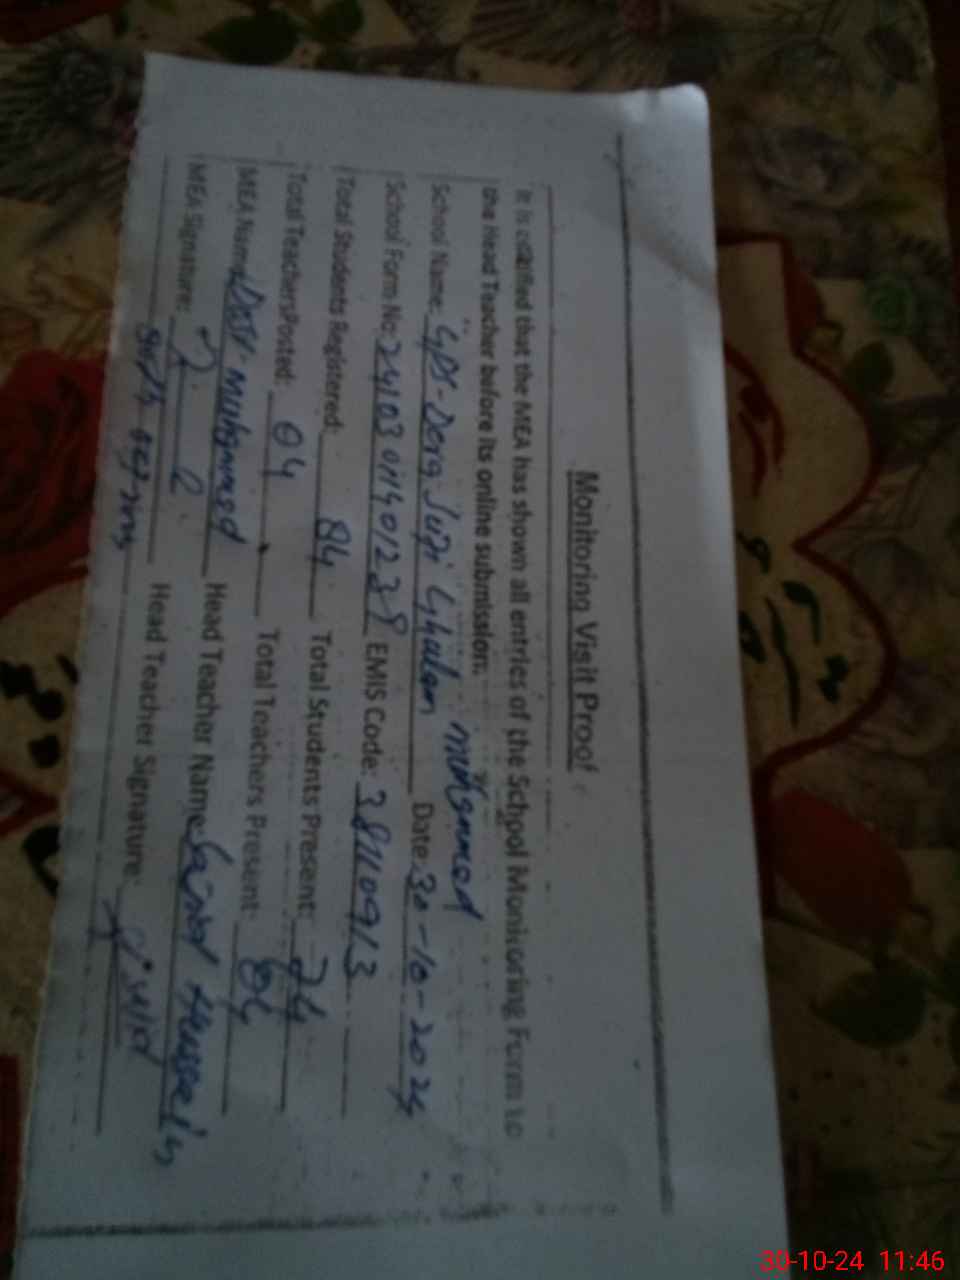 Monitoring Visit Proof
It is certified that the MEA has shown all entries of the School Monitoring Form to
the Head Teacher before its online submission.
School Name: GPS-Dera Ghulam Muhammad Date: 30-10-2024
School Form No: EMIS Code: 38110913
Total Students Registered: 84 Total Students Present: 74
Total Teachers Posted: 04 Total Teachers Present: 04
MEA Name: Muhammad Head Teacher Name: Hussain
MEA Signature: Head Teacher Signature:
30-10-24 11:46